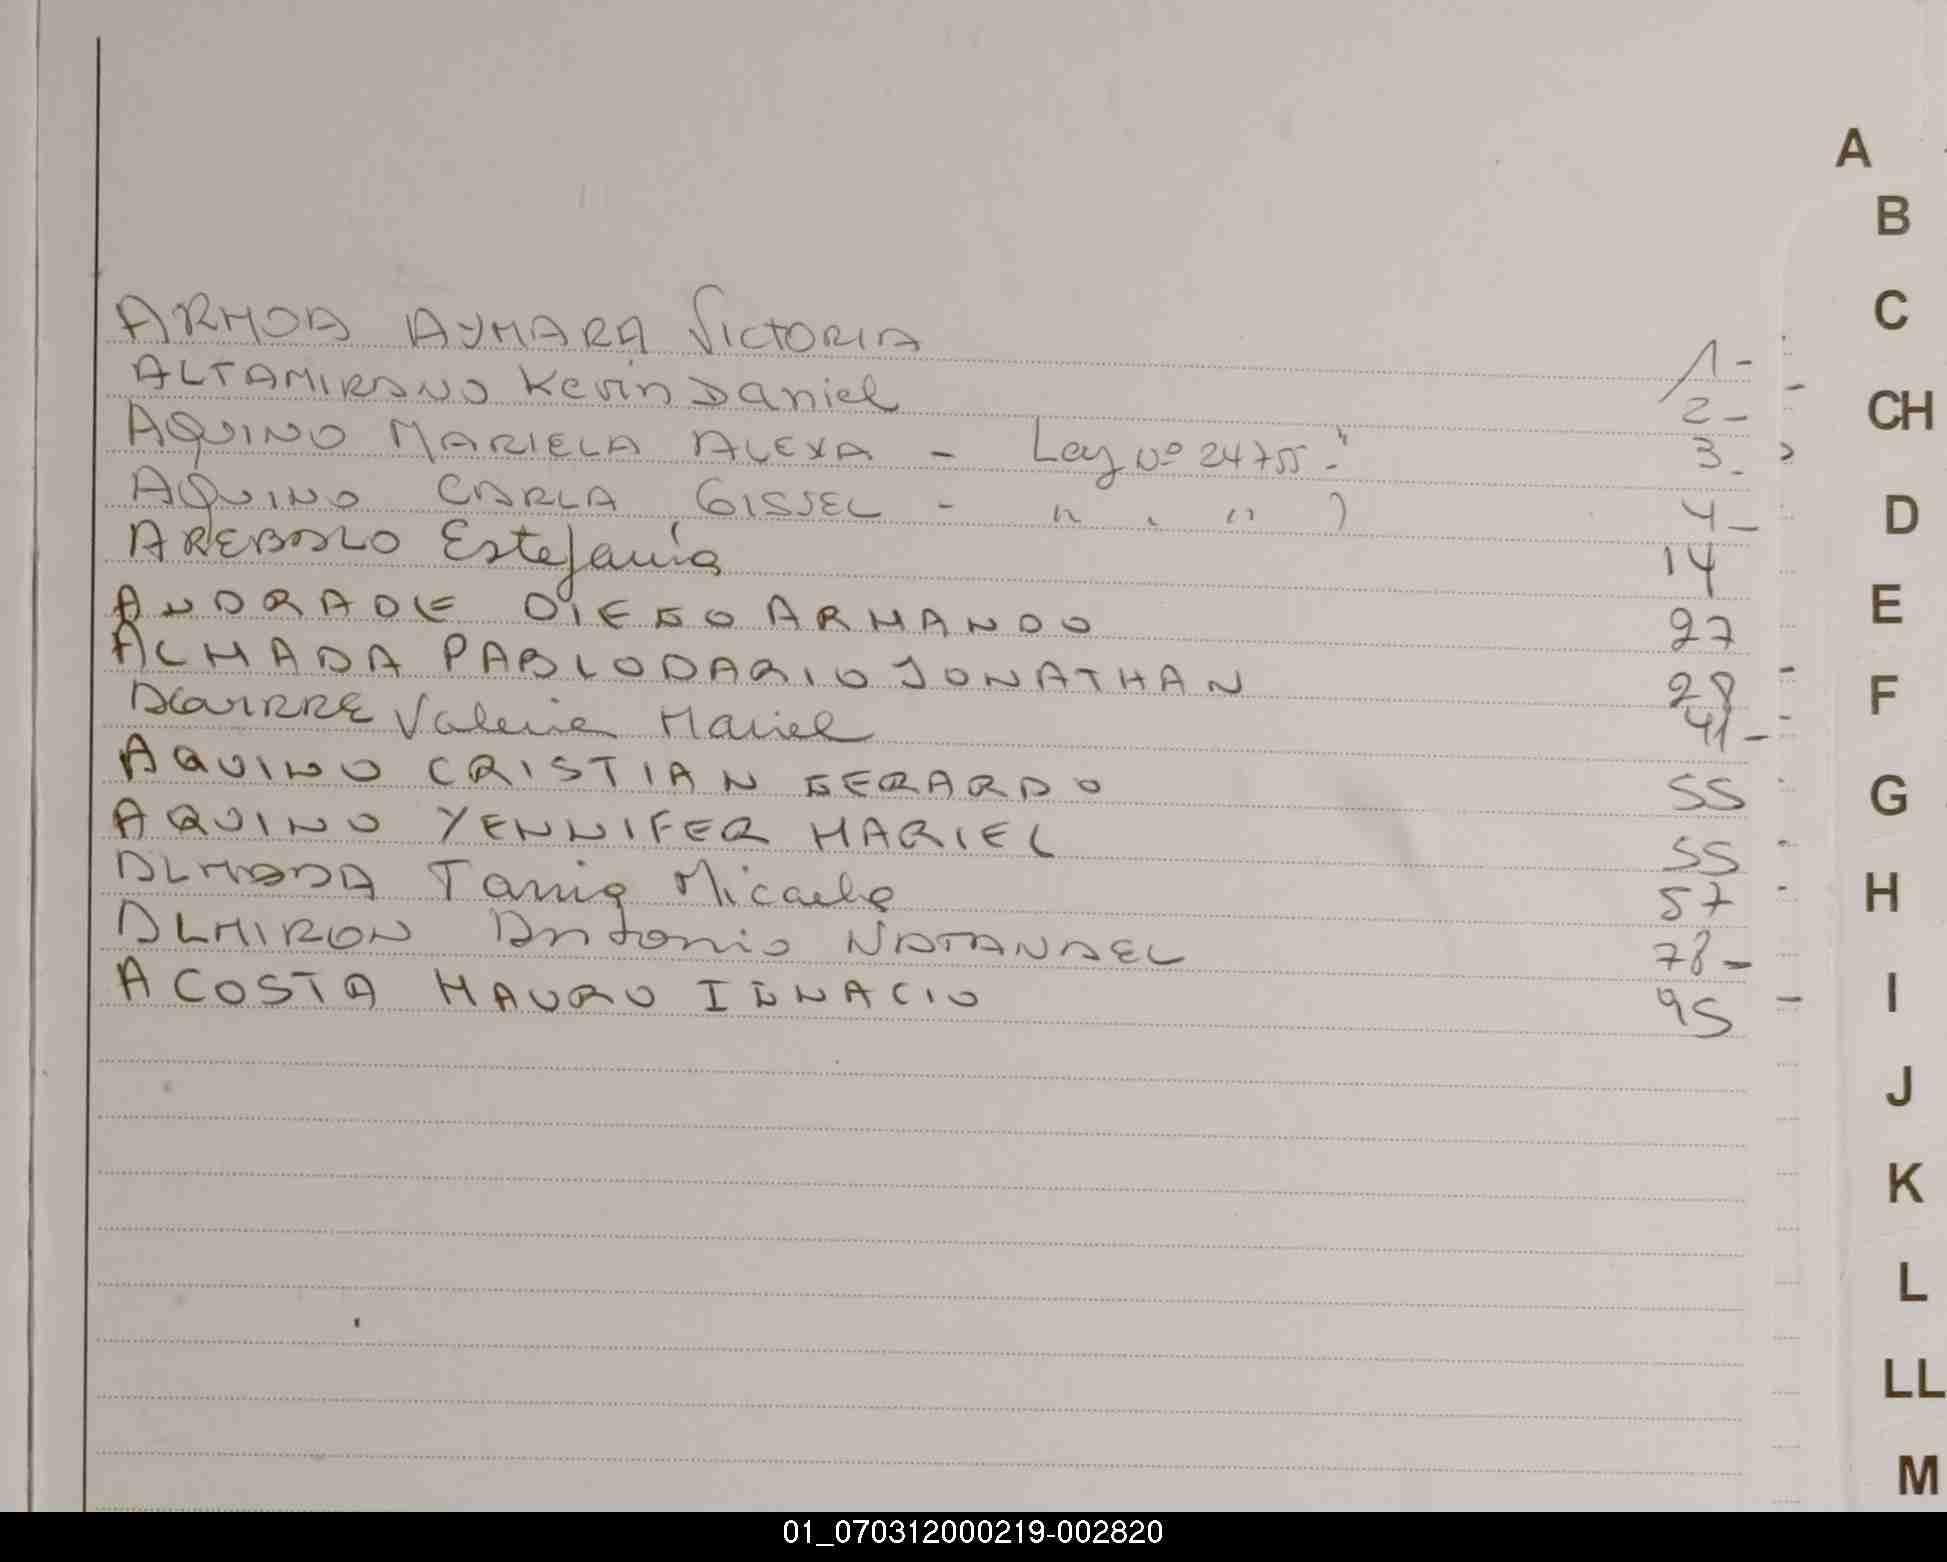 ARMOA AYMARA Victoria 1-
ALTAMIRANO Kevin Daniel 2-
AQUINO MARIELA ALEXA - Ley Nº 24755-" 3-
AQUINO CARLA GISSEL - " " " ) 4-
AREBALO Estefania 14
ANDRADE DIEGO ARMANDO 27
ALMADA PABLO DARIO JONATHAN 28
Valeria Mariel 41-
AQUINO CRISTIAN GERARDO 55
AQUINO YENNIFER MARIEL 55
ALMADA Tania Micaela 57
ALMIRON Antonio NATANAEL 78-
ACOSTA MAURO IGNACIO 95
A
B
C
CH
D
E
F
G
H
I
J
K
L
LL
M
01_070312000219-002820